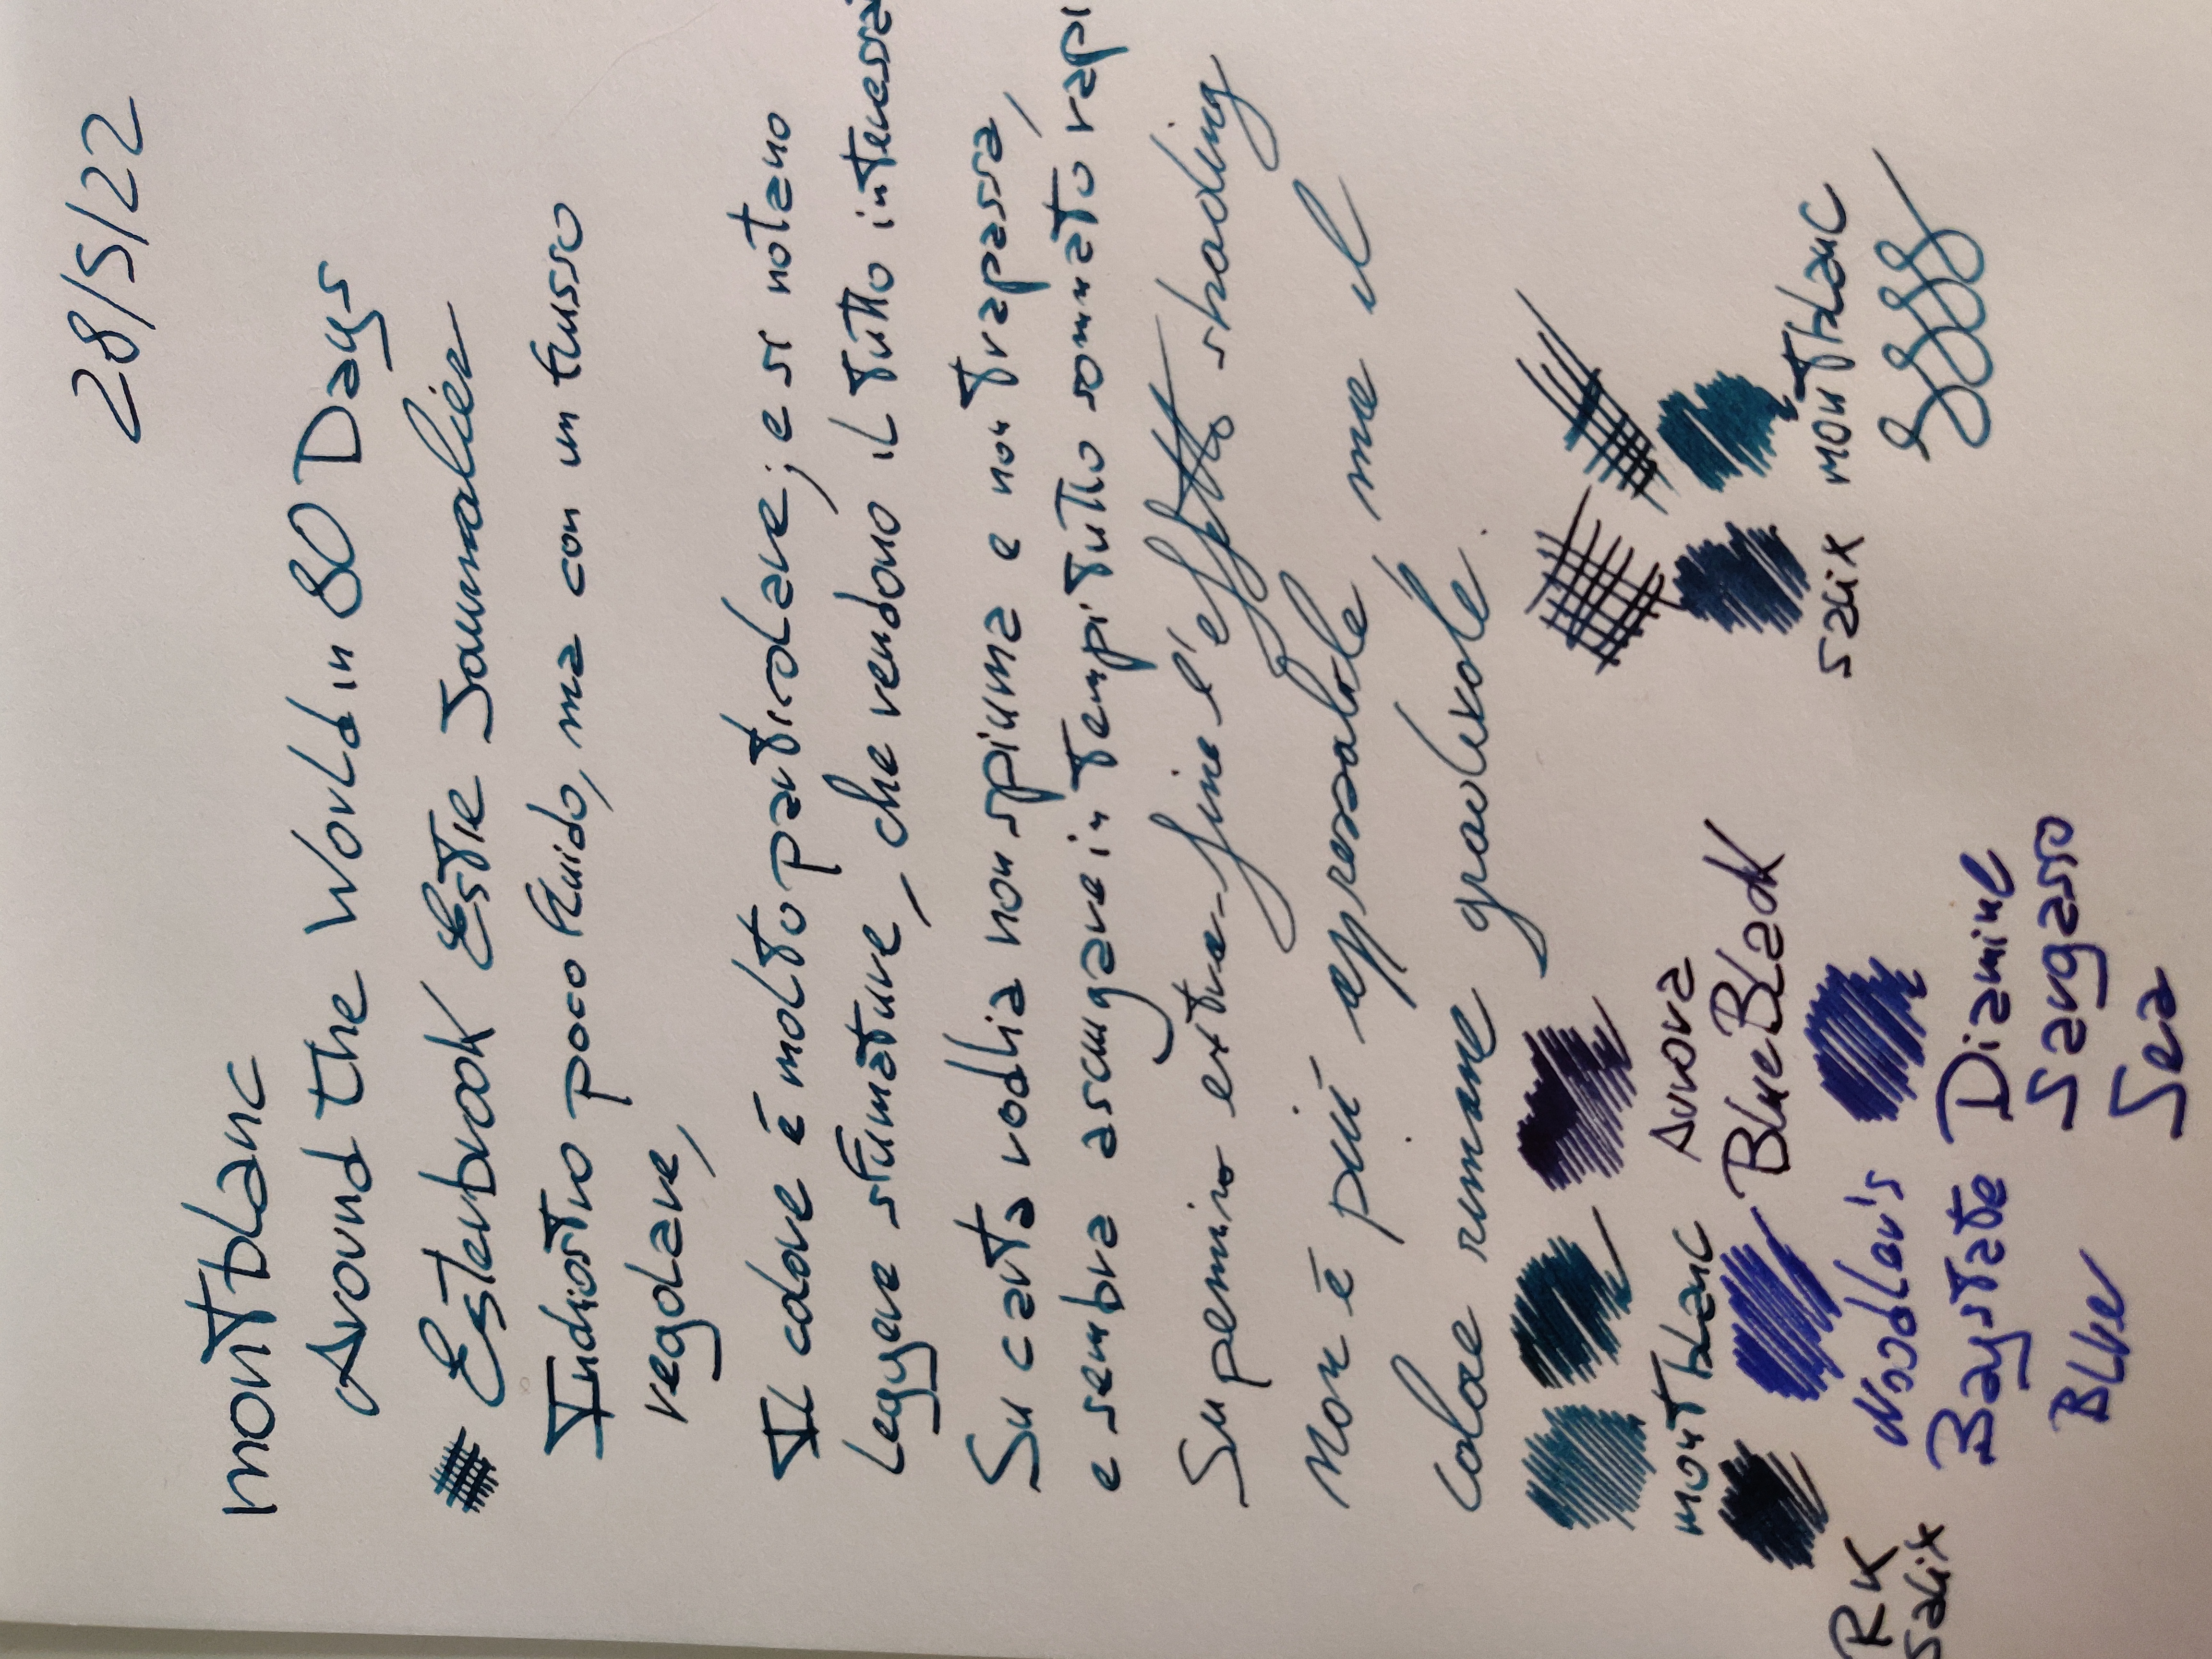 28/5/22
Montblanc
Around the World in 80 Days
Esterbrook Estie Journalier
Inchiostro poco fluido, ma con un flusso
regolare,
Il colore è molto particolare; e si notano
leggere sfumature, che rendono il tutto
Su carta rodhia non spiuma e non trapassa,
e sembra asciugare in tempi tutto sommato
Su pennino extra-fine l'effetto shading
non è più apprezzabile ma il
colore rimane gradevole.
Montblanc
Aurora
Blue Black
Salix
Montblanc
RK
Salix
Noodler's
Baystate
Blue
Diamine
Sargasso
Sea